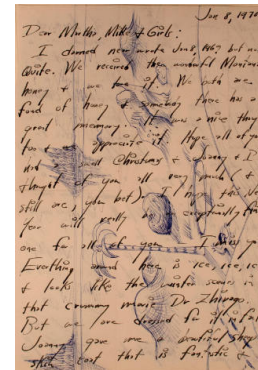 Jan 8, 1970
Dear Martha, Mike & Girls:
I damned near wrote Jan 8, 1969 but not
Quite. We received the wonderful
honey & we love it. We both are
fond of honey & someway there has a
great memory. It was a nice thing
for & appreciate it. Hope all of you
had a good Christmas & Jonny & I
thought of you all very much (&
still are you bet). I hope this New
Year will really be exceptionally fine
one for all of you.
Everthing around here is ice, ice, ice
& looks like the winter scenes in
that crummy movie Dr Zhivago.
But we are dressed for it all
Jonny gave me a beautiful sheep
skin coat that is fantastic &